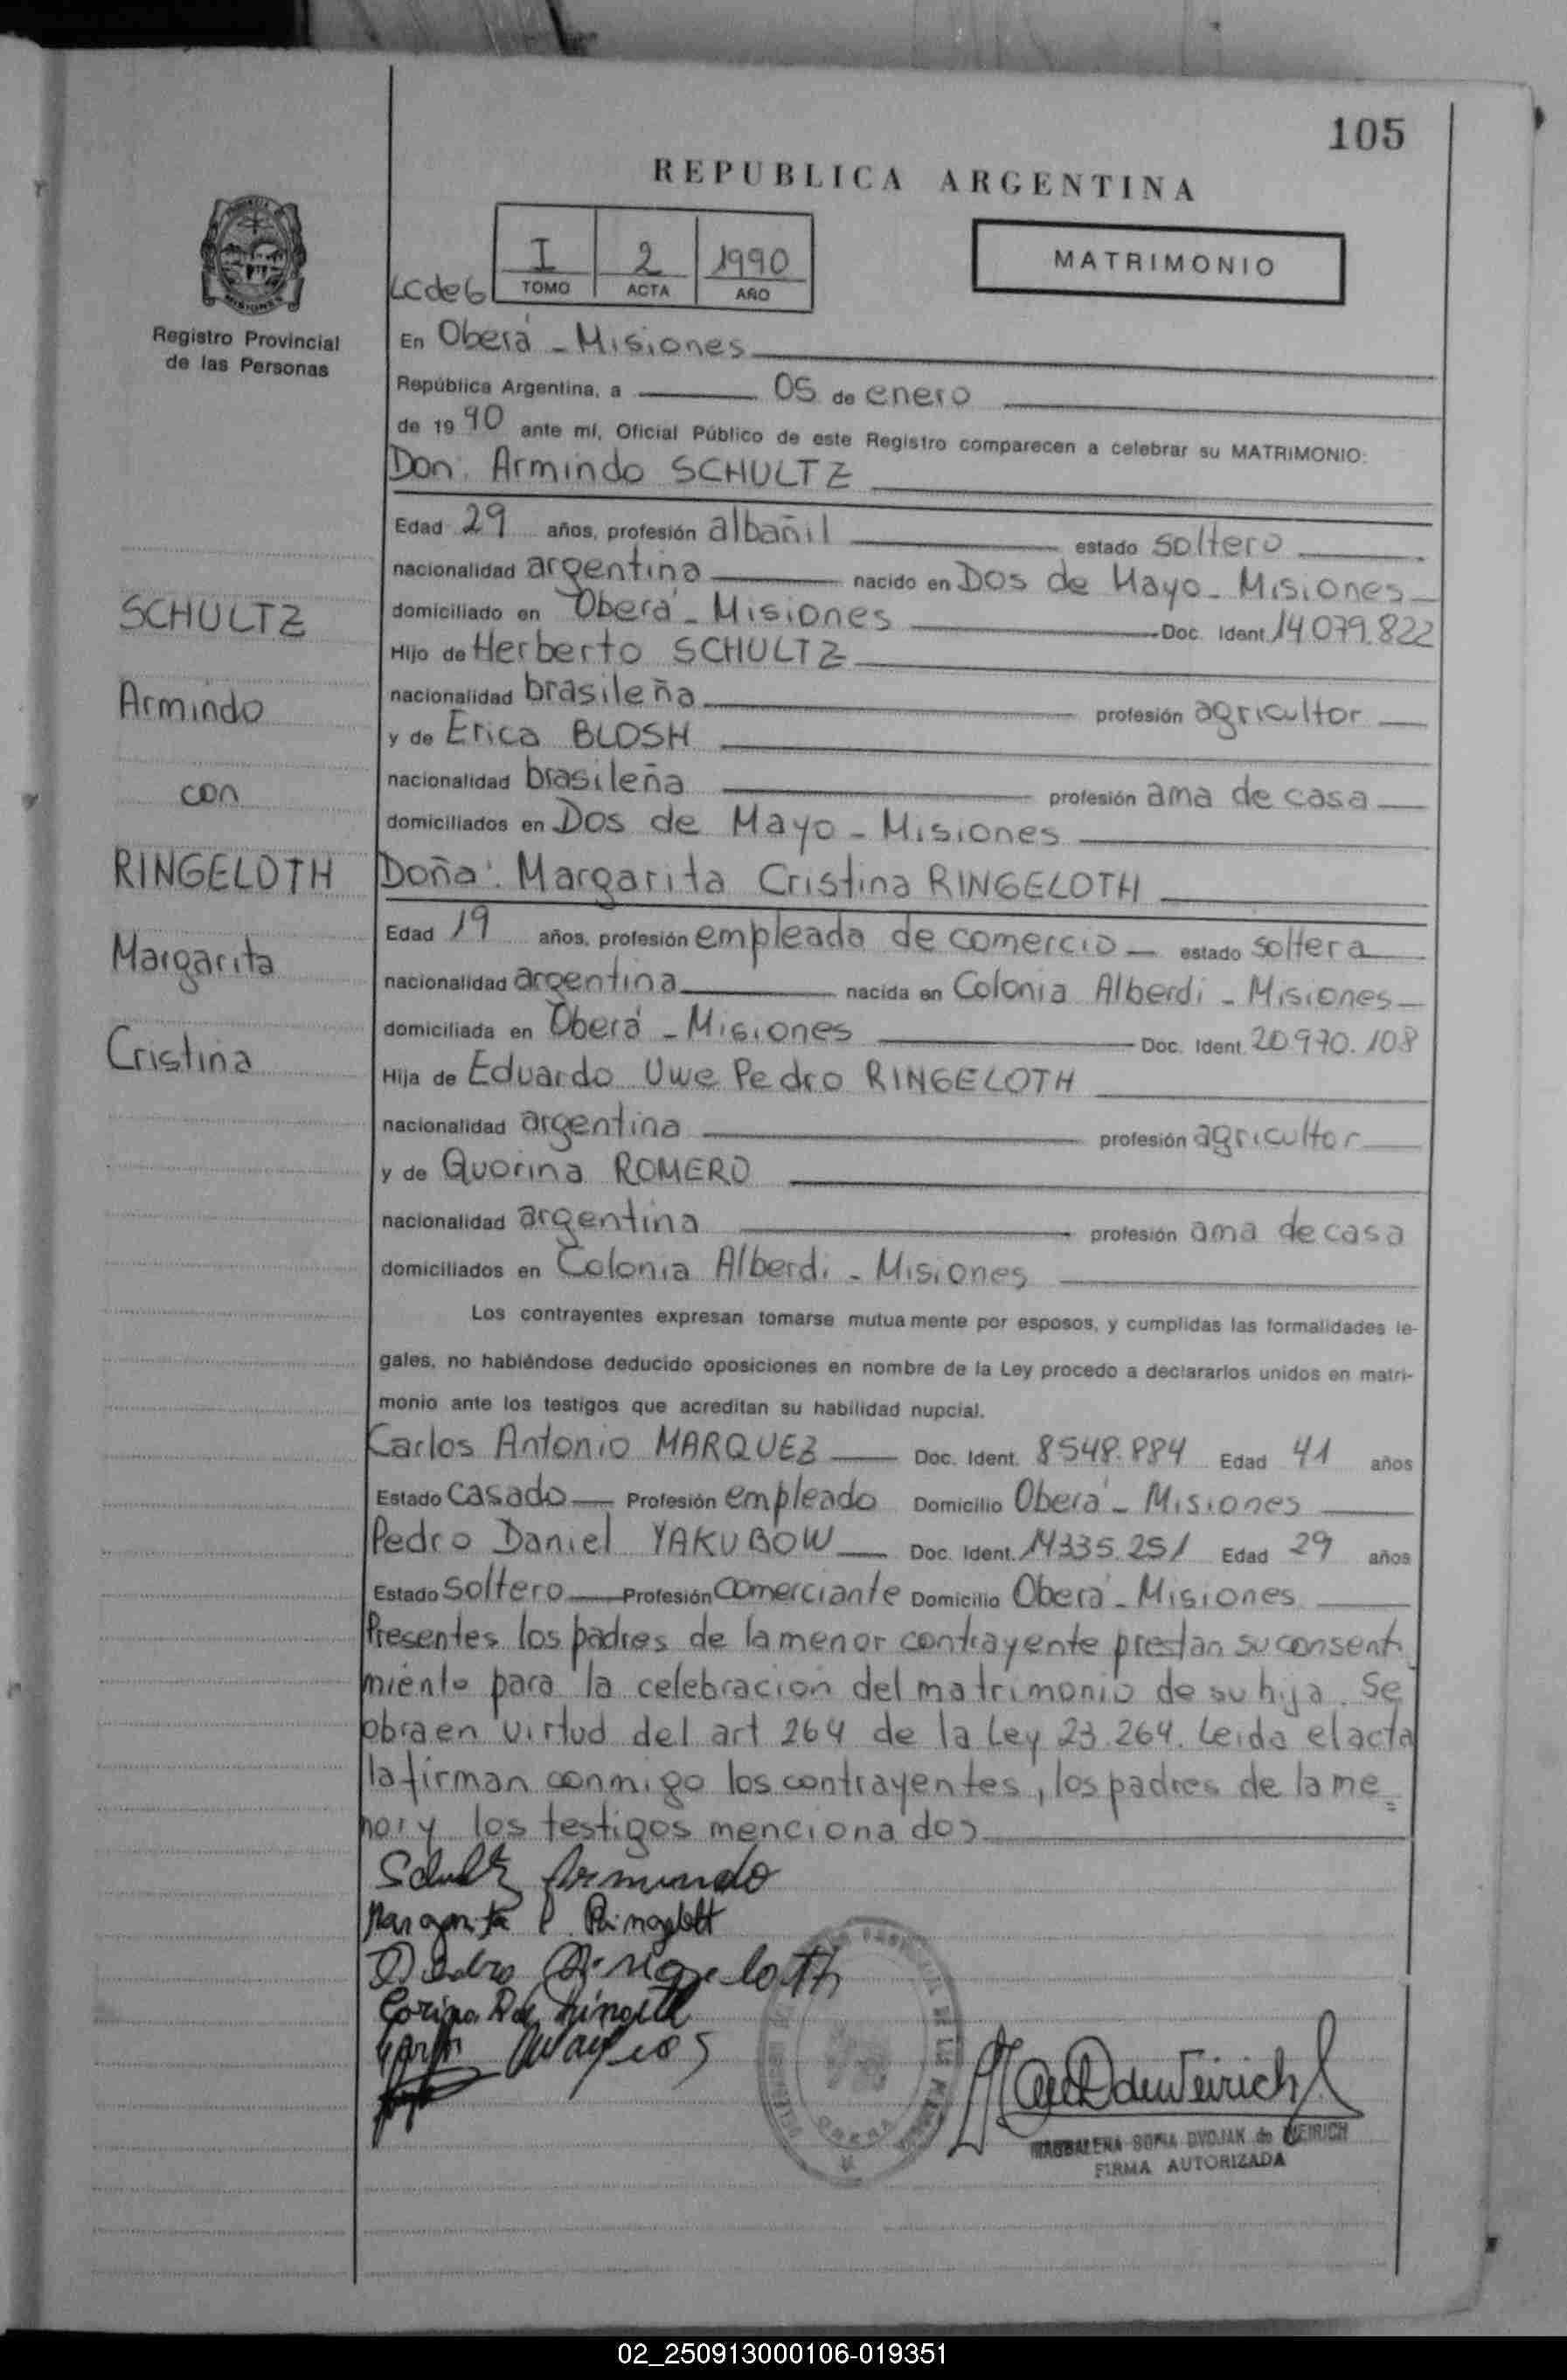 105
REPUBLICA ARGENTINA
MATRIMONIO
I 2 1990
TOMO ACTA AÑO
MISIONES
Registro Provincial
de las Personas
En Oberá - Misiones
República Argentina, a 05 de enero
de 1990 ante mí, Oficial Público de este Registro comparecen a celebrar su MATRIMONIO:
Don: Armindo SCHULTZ
Edad 29 años, profesión albañil estado soltero
nacionalidad argentina nacido en Dos de Mayo - Misiones
domiciliado en Oberá - Misiones Doc. Ident. 14.079.822
Hijo de Herberto SCHULTZ
nacionalidad brasileña profesión agricultor
y de Erica BLOSH
nacionalidad brasileña profesión ama de casa
domiciliados en Dos de Mayo - Misiones
SCHULTZ
Armindo
con
RINGELOTH
Margarita
Cristina
Doña: Margarita Cristina RINGELOTH
Edad 19 años, profesión empleada de comercio - estado soltera
nacionalidad argentina nacida en Colonia Alberdi - Misiones
domiciliada en Oberá - Misiones Doc. Ident. 20.970.108
Hija de Eduardo Uwe Pedro RINGELOTH
nacionalidad argentina profesión agricultor
y de Quorina ROMERO
nacionalidad argentina profesión ama de casa
domiciliados en Colonia Alberdi - Misiones
Los contrayentes expresan tomarse mutua mente por esposos, y cumplidas las formalidades le-
gales, no habiéndose deducido oposiciones en nombre de la Ley procedo a declararlos unidos en matri-
monio ante los testigos que acreditan su habilidad nupcial.
Carlos Antonio MARQUEZ Doc. Ident. 8548.884 Edad 41 años
Estado casado Profesión empleado Domicilio Oberá - Misiones
Pedro Daniel YAKUBOW Doc. Ident. 14335.251 Edad 29 años
Estado soltero Profesión comerciante Domicilio Oberá - Misiones
Presentes los padres de la menor contrayente prestan su consenti
miento para la celebración del matrimonio de su hija. Se
obra en virtud del art 264 de la Ley 23.264. Leida el acta
la firman conmigo los contrayentes, los padres de la me=
nor y los testigos mencionados
Schultz Armindo
Margarita
Pedro Ringeloth
Corina R de
MAGDALENA SOFIA DVOJAK de WEIRICH
FIRMA AUTORIZADA
02_250913000106-019351